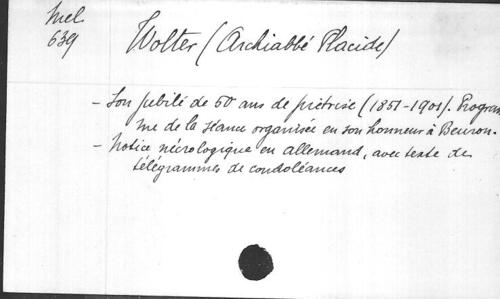 Mel
639
Wolter (Archiabbé Placide)
- Son jubilé de 50 ans de prêtrise (1851-1901). Program
me de la séance organisée en son honneur à Beuron.
- Notice nécrologique en allemand, avec texte de
télégrammes de condoléances